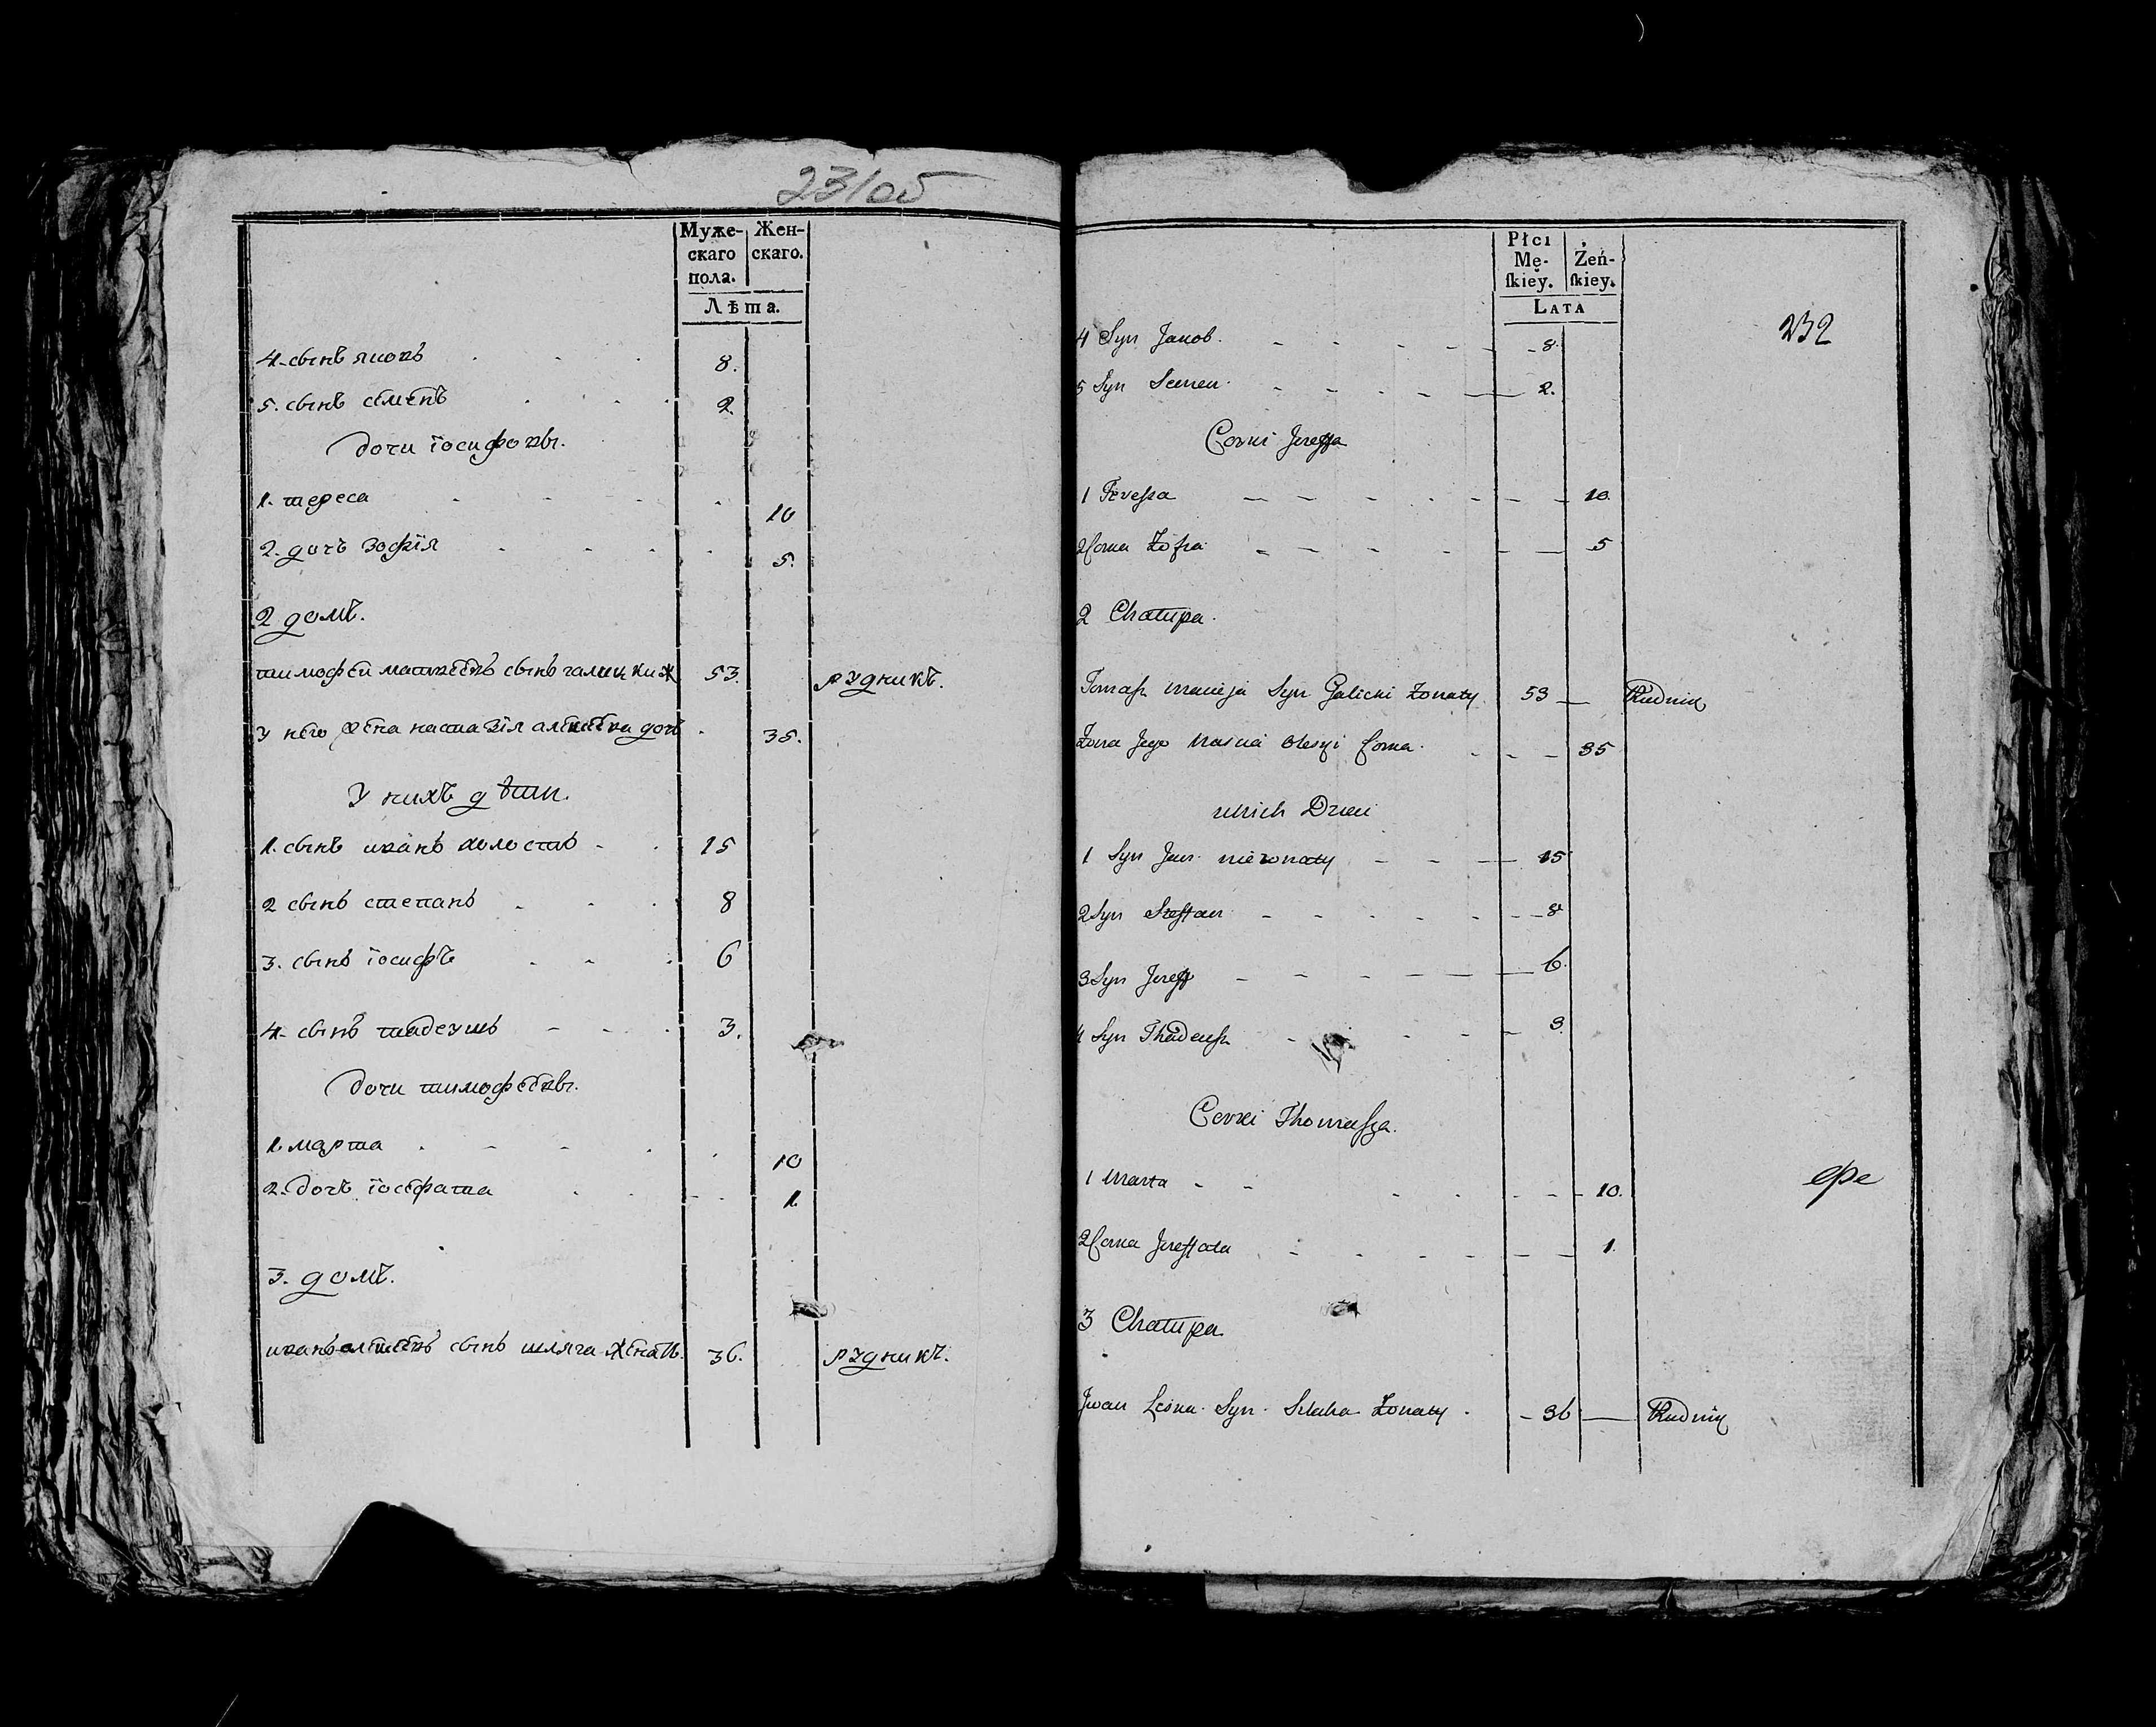 231об
Муже- Жен-
скаго скаго.
пола.
Лѣта.
4. сынъ яковъ 8.
5. сынъ семенъ 2.
дочи іосифовы.
1. тереса 10
2. дочъ зофія 5.
2 домъ.
тимофей матвеевъ сынъ галицки ж 53. рудникъ.
у него жена настазія алексеева дочъ 35.
у нихъ дѣти.
1. сынъ иванъ холостъ 15
2 сынъ степанъ 8
3. сынъ іосифъ 6
4. сынъ тадеушъ 3.
дочи тимофеевы.
1. марта 10
2. дочъ іосефата 1.
3. домъ.
иванъ алексеевъ сынъ шляга женатъ. 36. рудникъ.
232
Płci
Mę- Żeń-
ſkiey. ſkiey.
LATA
4 Syn Jakob. 8.
5 Syn Semen. 2.
Corki Jozeffa
1 Teressa 10.
2 Corka Zofia 5
2 Chałupa.
Tomasz Macieja Syn Galicki Zonaty 53 Rudnik
Zona Jego Nascia Olesyi Corka. 35
u nich Dzieci
1 Syn Jan niezonaty 15
2 Syn Steffan 8
3 Syn Jozeff 6.
4 Syn Thadeusz 3.
Corki Thomasza.
1 Marta 10.
2 Corka Jozeffata 1.
3 Chałupa
Jwan Syn Zonaty 36 Rudnik